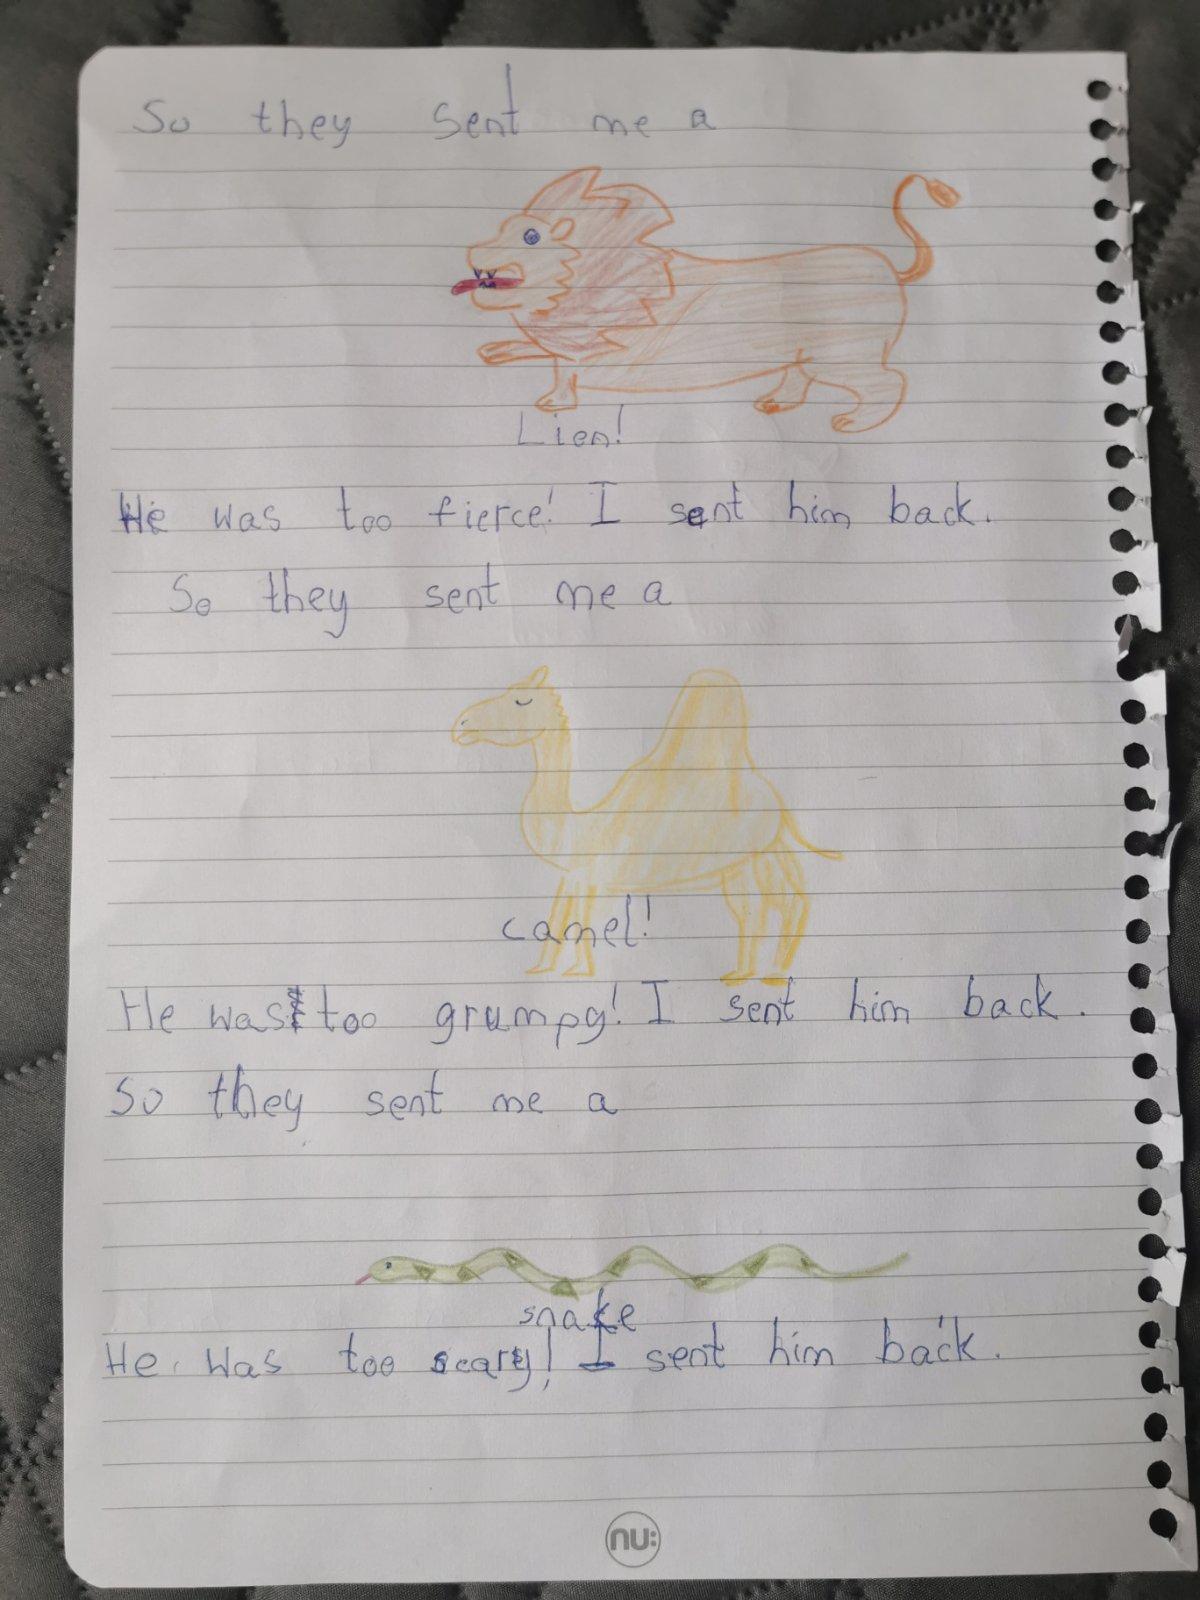 So they sent me a
Lien!
He was too fierce! I sent him back.
So they sent me a
camel!
He was too grumpy! I sent him back.
So they sent me a
snake
He was too scary! I sent him back.
nu: